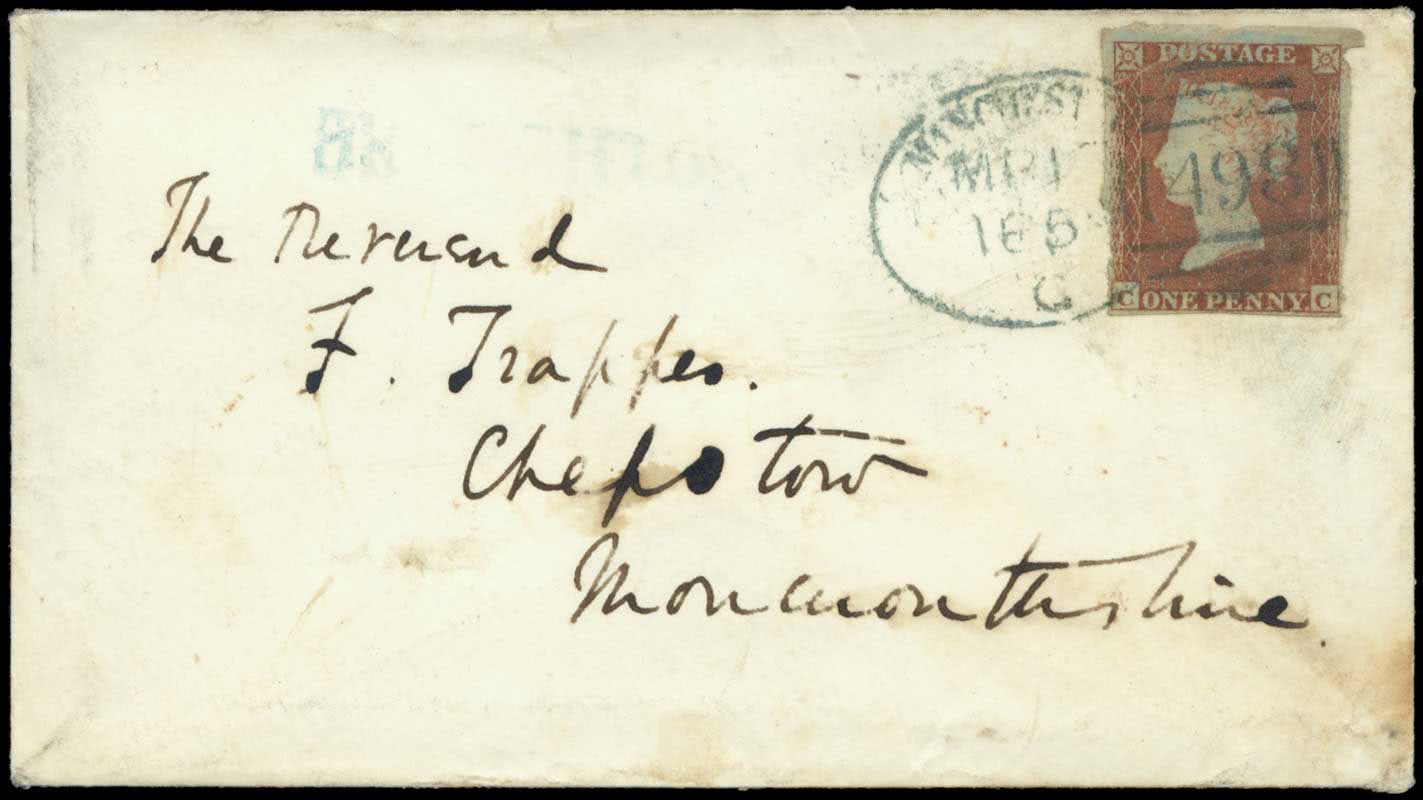 POSTAGE
MANCHEST
MR 1
185
C
498
C ONE PENNY. C
The Reverend
F. Trappes.
Chepstow
Monmouthshire.